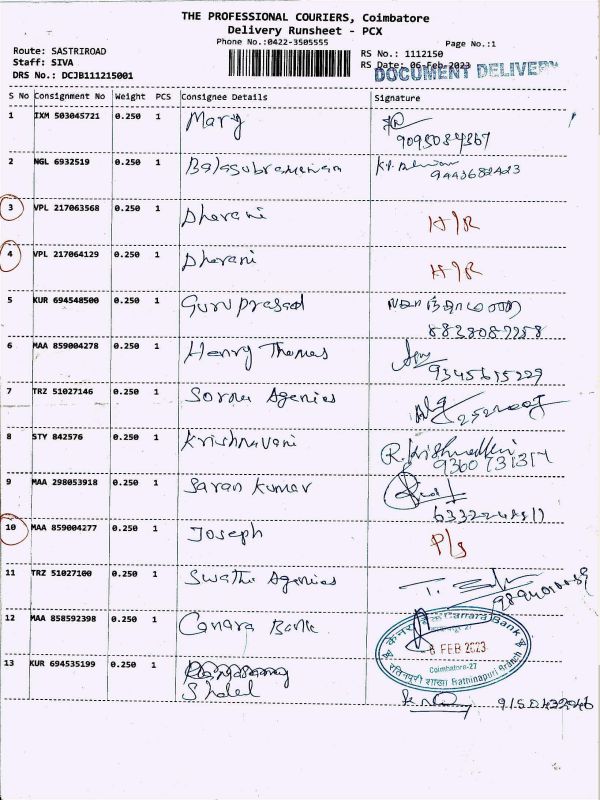 THE PROFESSIONAL COURIERS, Coimbatore
Delivery Runsheet - PCX
Phone No.:0422-3505555
Page No.:1
Route: SASTRIROAD
RS No.: 1112150
Staff: SIVA
RS Date: 06-Feb-2023
DRS No.: DCJB111215001
DOCUMENT DELIVERY
S No Consignment No Weight PCS Consignee Details Signature
1 IXM 503045721 0.250 1 Mary
2 NGL 6932519 0.250 1 Balasubramanian
9443682423
3 VPL 217063568 0.250 1 Dharani H/R
4 VPL 217064129 0.250 1 Dharani H/R
5 KUR 694548500 0.250 1 Guru prasad
6 MAA 859004278 0.250 1 Henry Thomas
9345615229
7 TRZ 51027146 0.250 1 Sorna Agenies
8 STY 842576 0.250 1 Krishnavani
9 MAA 298053918 0.250 1 Saran Kumar
10 MAA 859004277 0.250 1 Joseph P/s
11 TRZ 51027100 0.250 1 Swathi Agenies
12 MAA 858592398 0.250 1 Canara Bank
केनरा बैंक Canara Bank
6 FEB 2023
Coimbatore-27
Rathinapuri Branch
13 KUR 694535199 0.250 1
9150432946